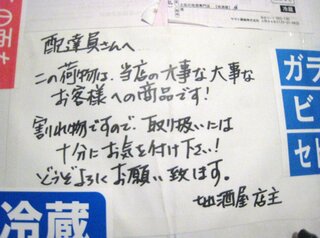 冷蔵
配達員さんへ
この荷物は、当店の大事な大事な
お客様への商品です!
割れ物ですので、取り扱いには
十分にお気を付け下さい!
どうぞよろしくお願い致します。
地酒屋店主
ガラ
ビ
セト
冷蔵